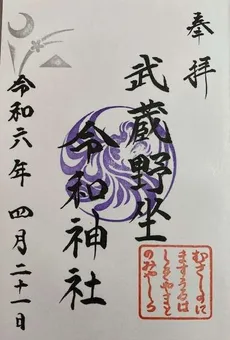 奉拝
武蔵野坐
令和神社
令和六年 四月二十一日
むさしのに
ますうるは
しきやまと
のみやしろ